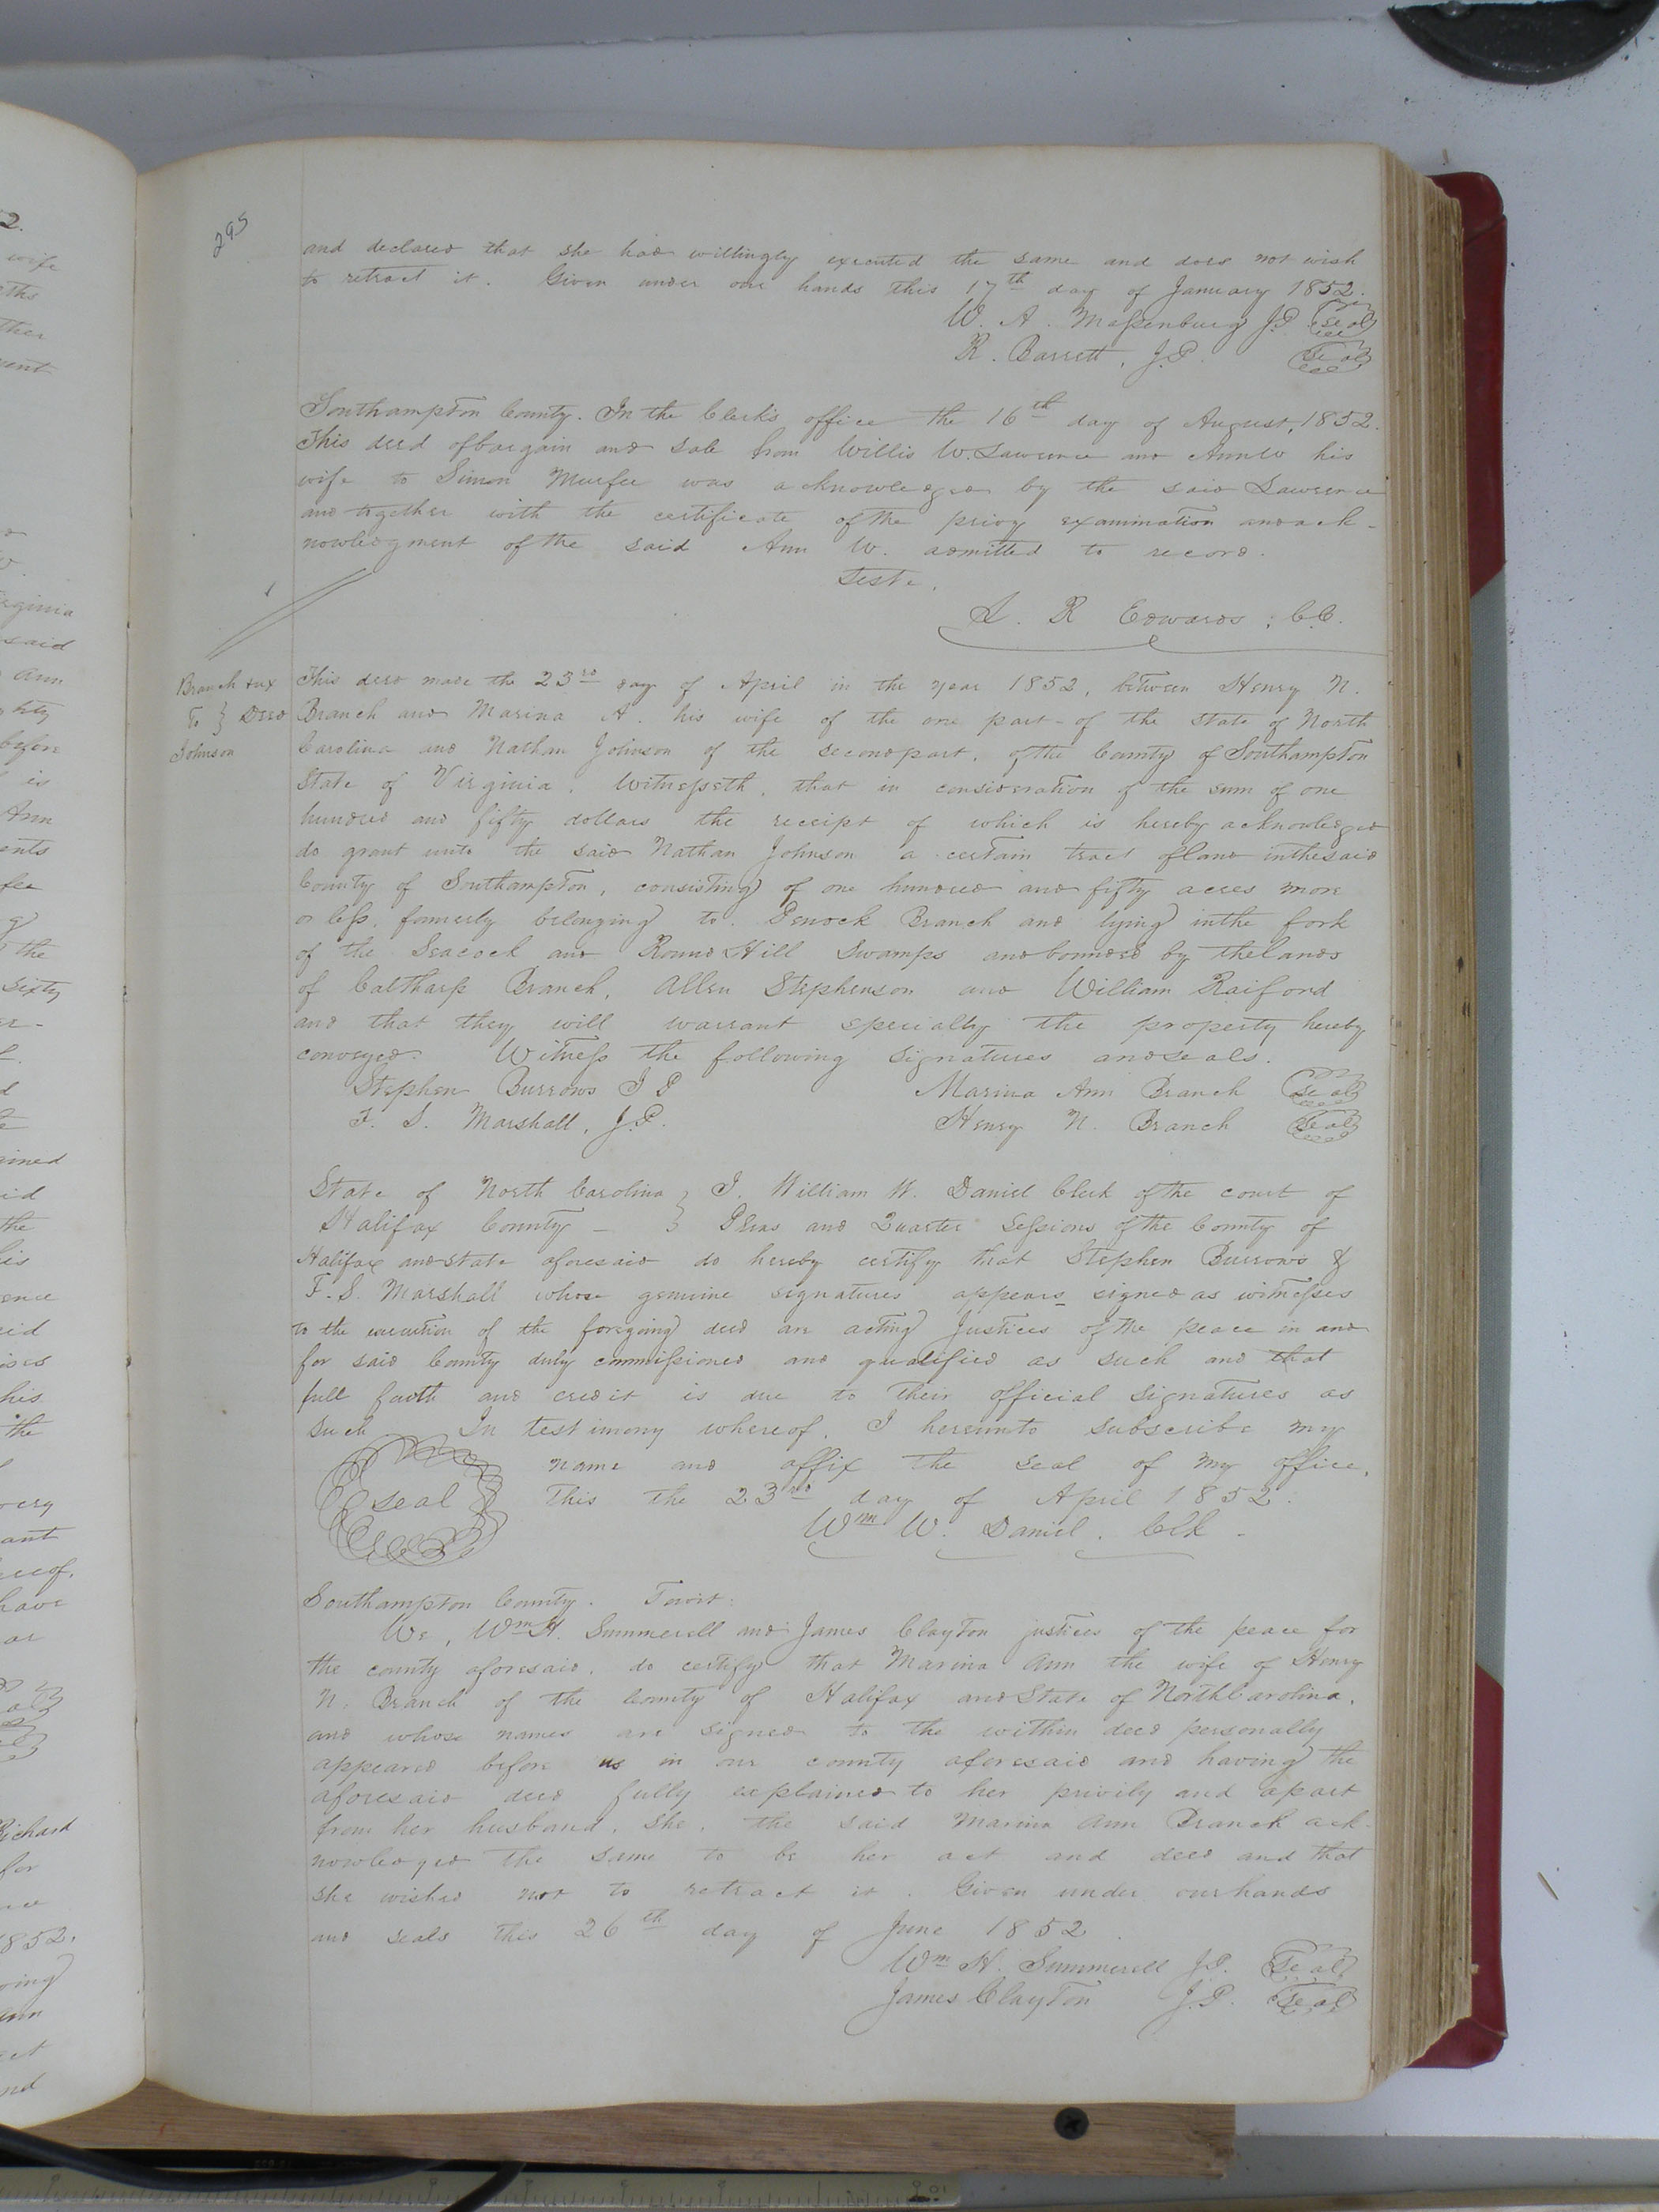 295
and declared that she had willingly executed the same and does not wish
to retract it. Given under our hands this 17th day of January 1852.
W. A. Massenburg J.P. Seal
R. Barrett, J.P. Seal
Southampton County. In the Clerk's office the 16th day of August, 1852.
This deed of bargain and sale from Willis W. Lawrence and Ann W his
wife to Simon Murfee was acknowledged by the said Lawrence
and together with the certificate of the privy examination and ack-
nowledgment of the said Ann W. admitted to record.
Teste,
L. R Edwards, C.C.
Branch & ux
To } Deed
Johnson
This deed made the 23rd day of April in the year 1852, between Henry N.
Branch and Marina A. his wife of the one part - of the State of North
Carolina and Nathan Johnson of the second part, of the County of Southampton
State of Virginia, Witnesseth, that in consideration of the sum of one
hundred and fifty dollars the receipt of which is hereby acknowledged
do grant unto the said Nathan Johnson a certain tract of land in the said
County of Southampton, consisting of one hundred and fifty acres more
or less, formerly belonging to Branch and lying in the fork
of the Seacock and Round Hill Swamps and bounded by the lands
of Caltharp Branch, Allen Stephenson and William Raiford
and that they will warrant specially the property hereby
conveyed. Witness the following signatures and seals.
Stephen Burrows J P Marina Ann Branch Seal
F. S. Marshall, J.P. Henry N. Branch Seal
State of North Carolina } I, William W. Daniel Clerk of the court of
Halifax County - } Pleas and Quarter Sessions of the County of
Halifax and State aforesaid do hereby certify that Stephen Burrows &
F. S. Marshall whose genuine signatures appears signed as witnesses
to the execution of the foregoing deed are acting Justices of the peace in and
for said County duly commissioned and qualified as such and that
full faith and credit is due to their official signatures as
such In testimony whereof, I hereunto subscribe my
name and affix the seal of my office,
seal this the 23rd day of April 1852.
Wm W. Daniel. Clk -
Southampton County. Towit:
We, Wm H. Summerell and James Clayton justices of the peace for
the county aforesaid, do certify that Marina Ann the wife of Henry
N. Branch of the County of Halifax and State of North Carolina,
and whose names are signed to the within deed personally
appeared before us in our county aforesaid and having the
aforesaid deed fully explained to her privily and apart
from her husband, she, the said Marina Ann Branch ack-
nowledged the same to be her act and deed and that
she wished not to retract it. Given under our hands
and seals this 26th day of June 1852.
Wm H. Summerell J.P. Seal
James Clayton J.P. Seal